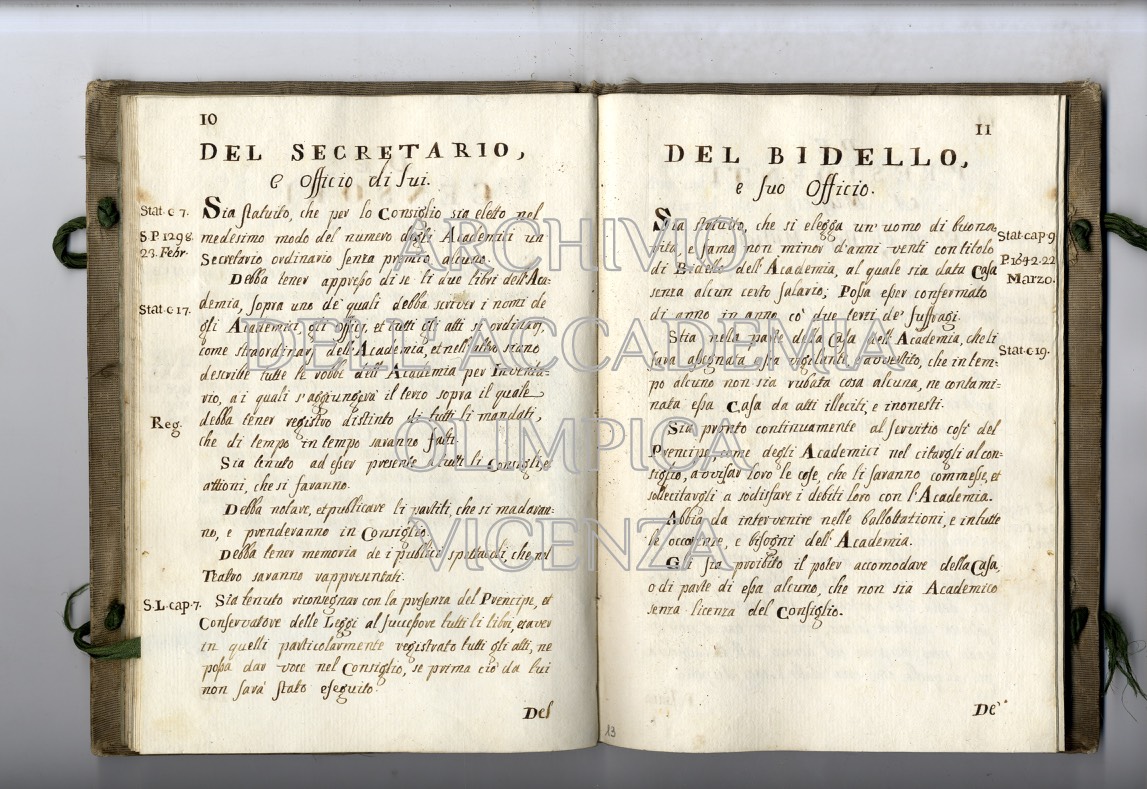 10
DEL SECRETARIO,
e Officio di lui.
Stat. c. 7.
S P 1298.
23. Febr.
Sia statuito, che per lo Consiglio sia eletto nel
medesimo modo del numero degli Academici un
Secretario ordinario senza premio alcuno.
Debba tener appresso di se li due libri dell'Aca-
Stat. c 17.
demia, sopra uno de' quali debba scriver i nomi de
gli Academici gli officj, et tutti gli atti sì ordinarj,
come straordinarj dell'Academia, et nell'altro siano
descritte tutte le robbe dell'Academia per Inventa-
rio, a i quali s'aggiungerà il terzo sopra il quale
Reg.
debba tener registro distinto di tutti li mandati,
che di tempo in tempo saranno fatti.
Sia tenuto ad esser presente a tutti li Consiglj, e
attioni, che si faranno.
Debba notare, et publicare li partiti, che si
no, e prenderanno in Consiglio.
Debba tener memoria de i publici spettacoli, che nel
Teatro saranno rappresentati.
S. L. cap. 7.
Sia tenuto riconsegnar con la presenza del Prencipe, et
Conservatore delle Leggi al successore tutti li libri, et aver
in quelli particolarmente registrato tutti gli atti, ne
possa dar voce nel Consiglio, se prima ciò da lui
non sarà stato eseguito.
Del
11
DEL BIDELLO,
e suo Officio.
Stat. cap. 9
P. 1642. 22
Marzo.
Sia statuito, che si elegga un'uomo di buona
vita, e fama non minor d'anni venti con titolo
di Bidello dell'Academia, al quale sia data Casa
senza alcun certo salario; Possa esser confermato
di anno in anno co' due terzi de' suffragi.
Stia nella parte della Casa dell'Academia, che li
Stat. c 19.
sarà assegnata essa vigilante, e avvertito, che in tem-
po alcuno non sia rubata cosa alcuna, ne contami-
nata essa Casa da atti illeciti, e inonesti.
Sia pronto continuamente al servitio così del
Prencipe, come degli Academici nel citargli al con-
siglio, avvisar loro le cose, che li saranno commesse, et
sollecitargli a sodisfare i debiti loro con l'Academia.
Abbia da intervenire nelle ballottationi, e in tutte
le occorenze, e bisogni dell'Academia.
Gli sia proibito il poter accomodare della Casa,
o di parte di essa alcuno, che non sia Academico
senza licenza del Consiglio.
De'
13
ARCHIVIO
DELL'ACCADEMIA
OLIMPICA
VICENZA